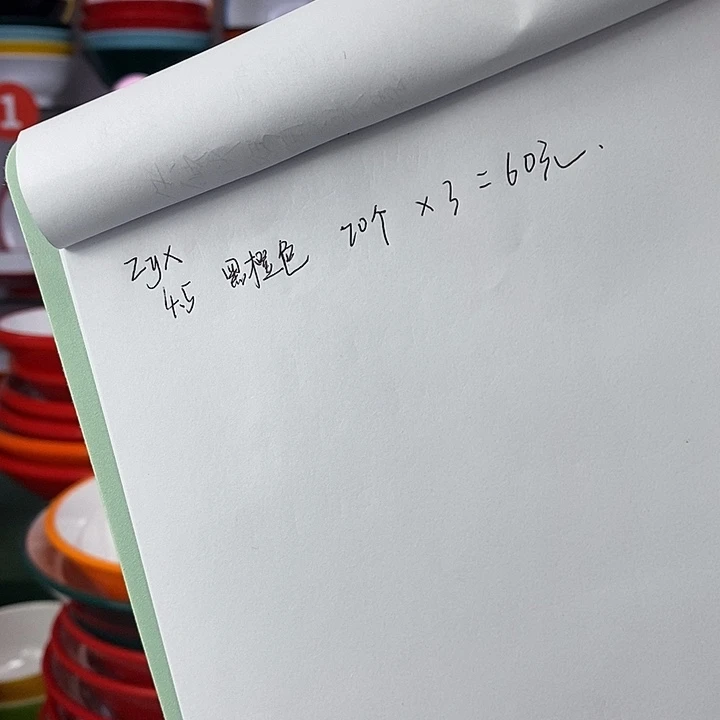 zyx
4.5 黑橙色 20个 × 3 = 60元.
1